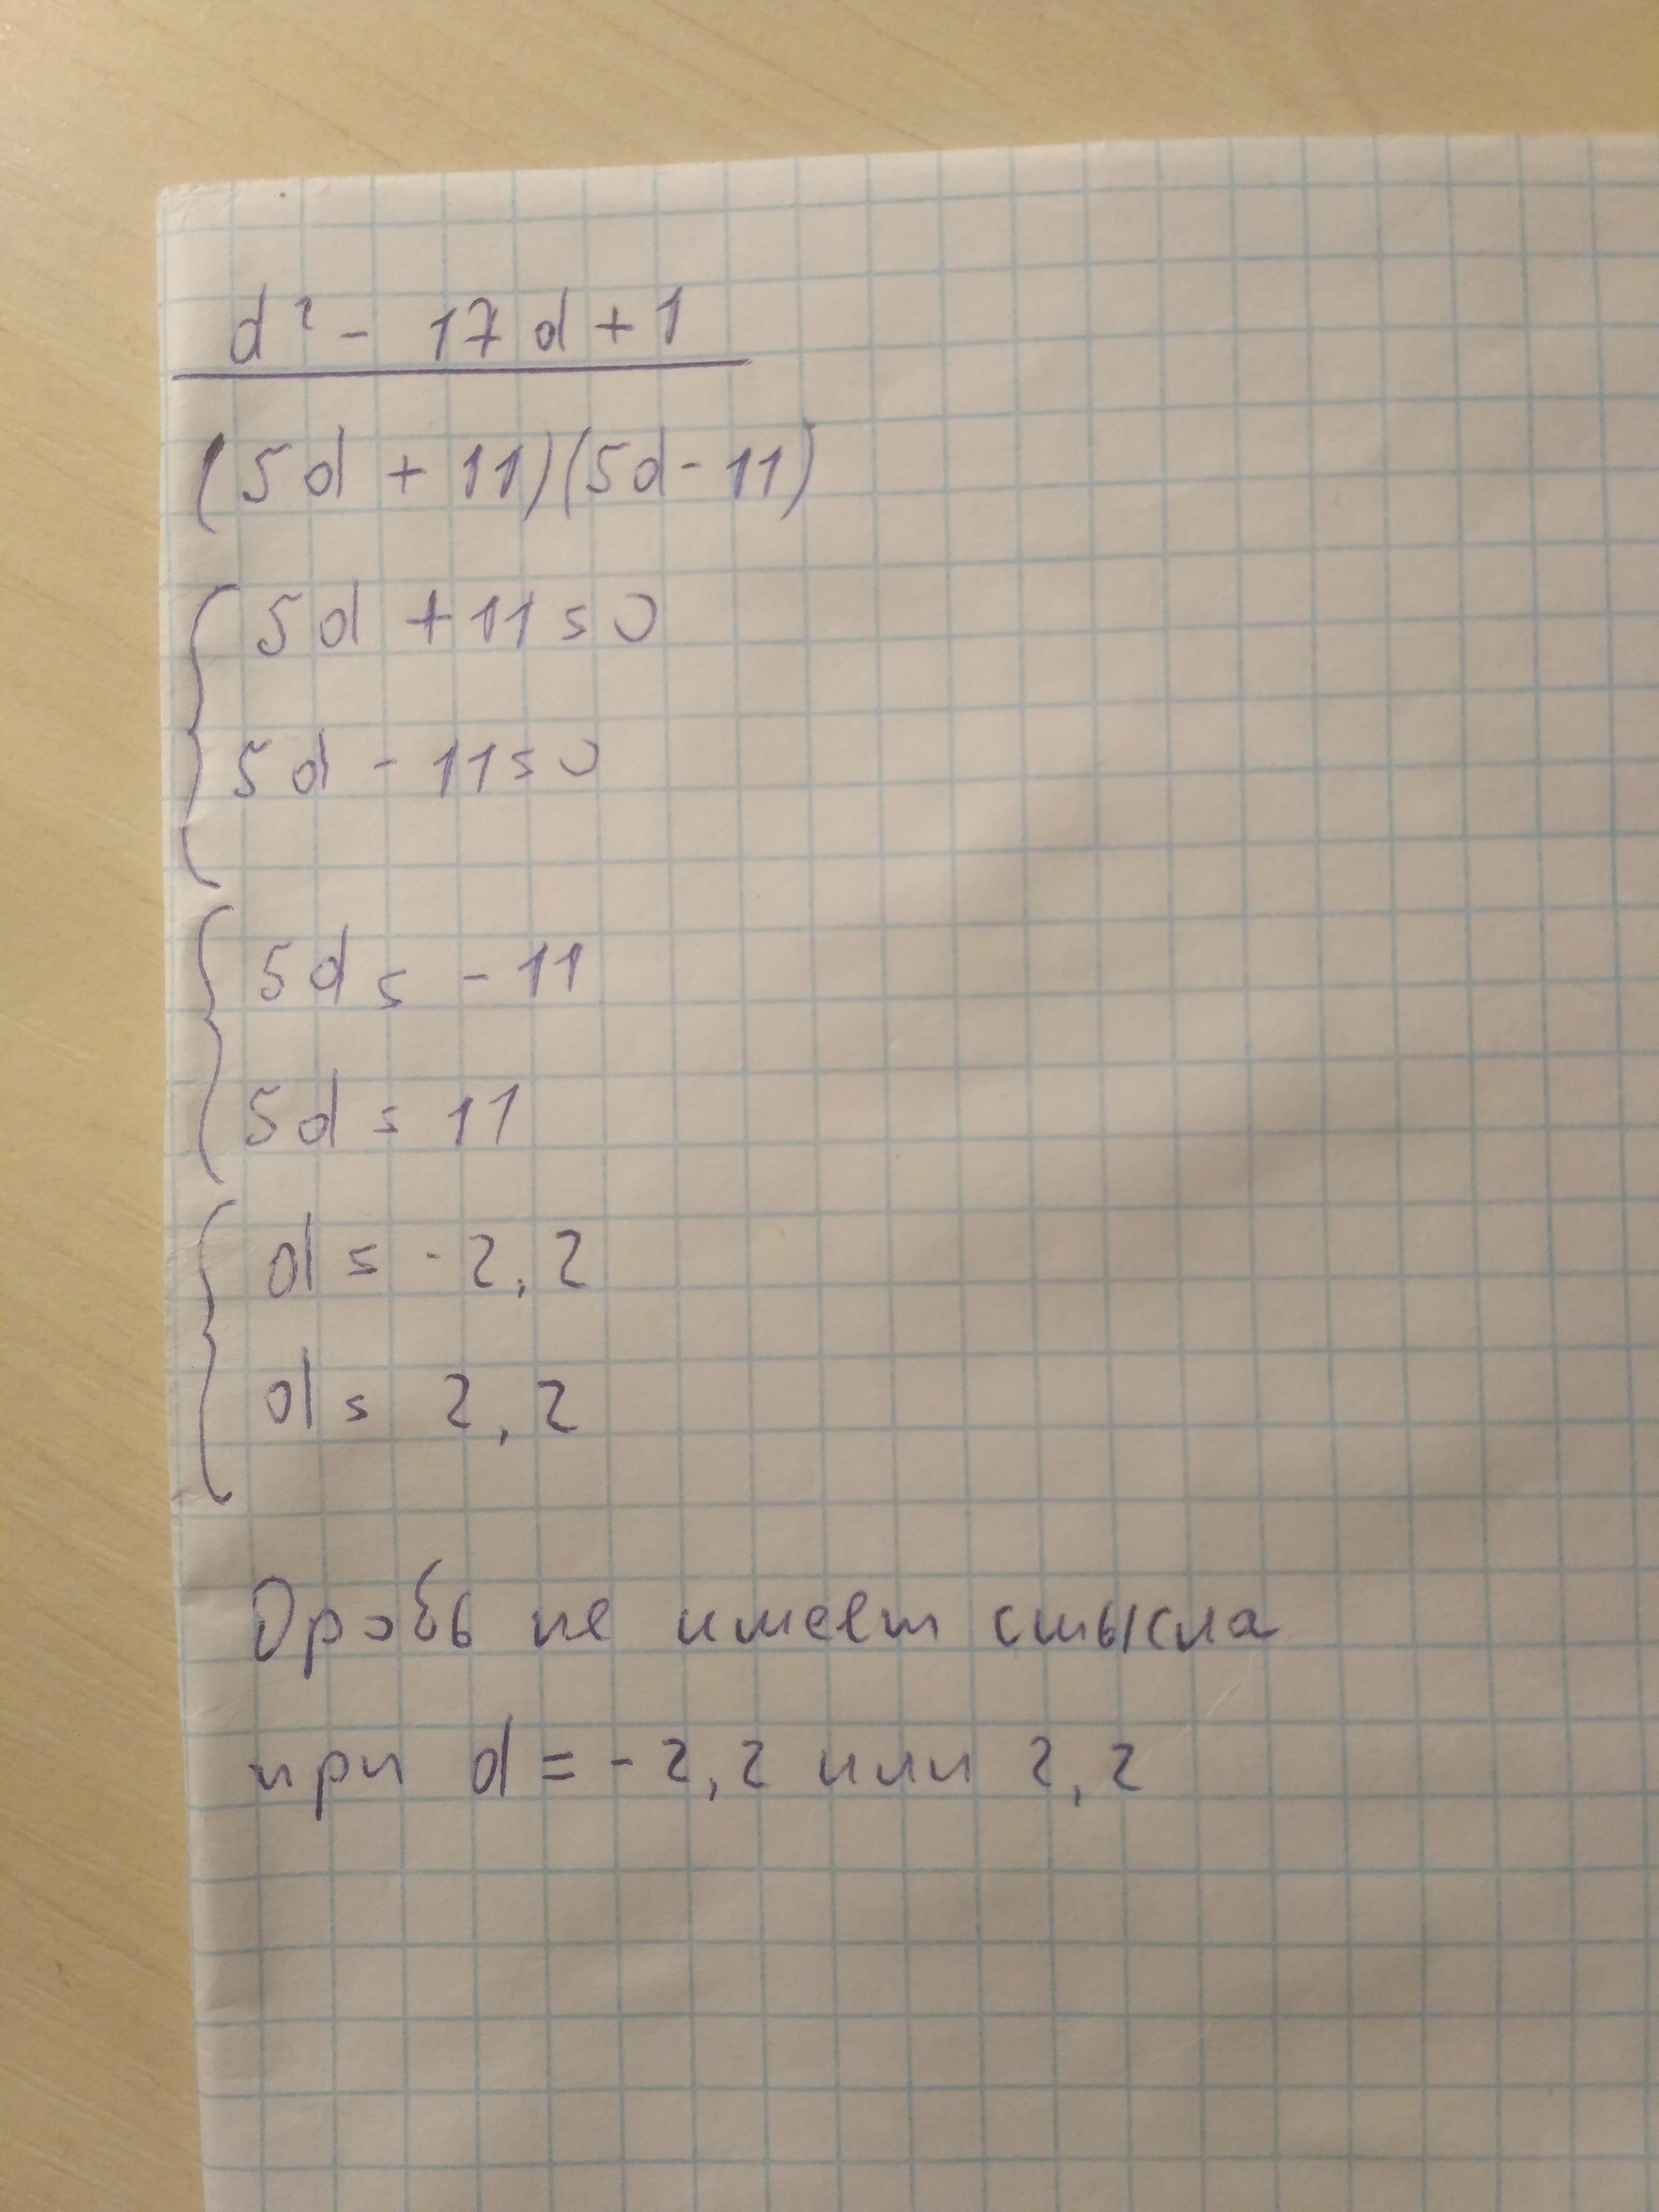 d² - 17d + 1
(5d + 11)(5d - 11)
5d + 11 = 0
5d - 11 = 0
5d = - 11
5d = 11
d = -2,2
d = 2,2
Дробь не имеет смысла
при d = -2,2 или 2,2